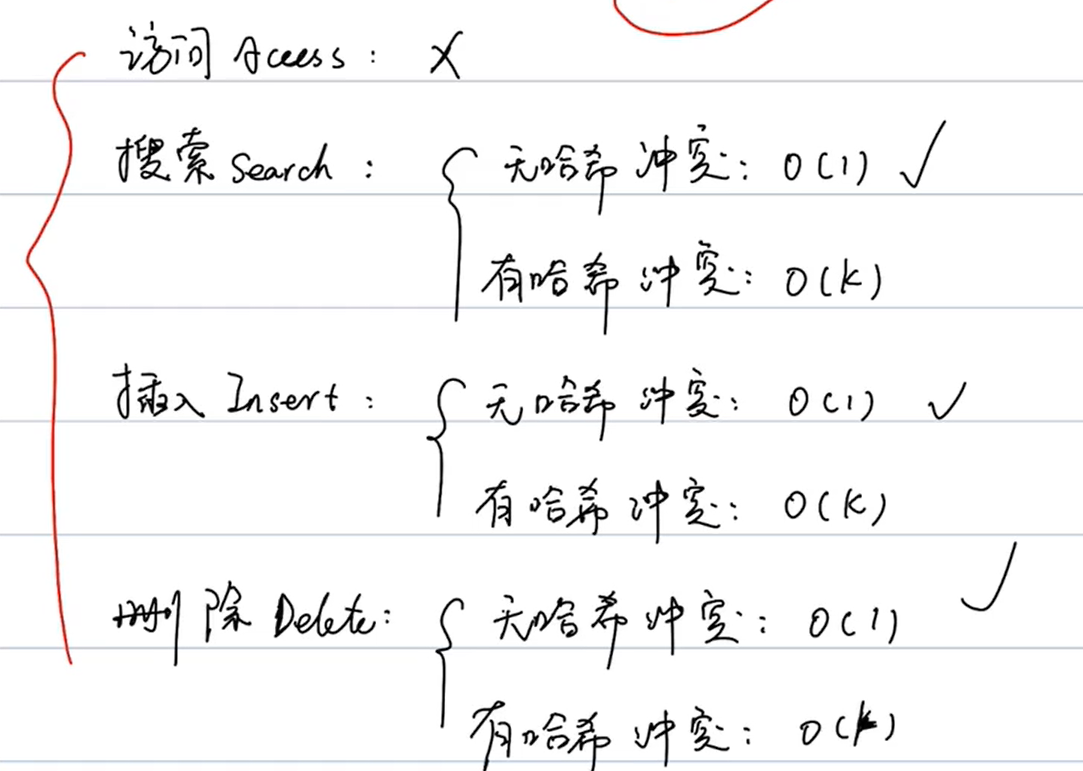 访问 Access : X
搜索 Search : 无哈希冲突: O(1) ✓
有哈希冲突: O(K)
插入 Insert : 无哈希冲突: O(1) ✓
有哈希冲突: O(K)
删除 Delete: 无哈希冲突: O(1) ✓
有哈希冲突: O(K)